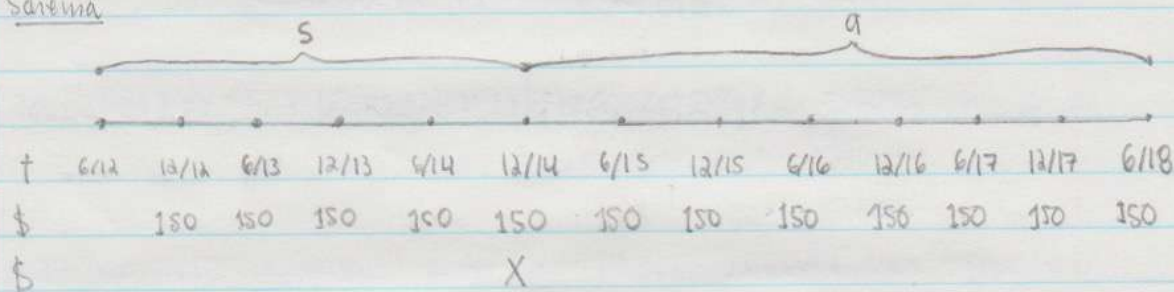 S a
t 6/12 12/12 6/13 12/13 6/14 12/14 6/15 12/15 6/16 12/16 6/17 12/17 6/18
$ 150 150 150 150 150 150 150 150 150 150 150 150
$ X